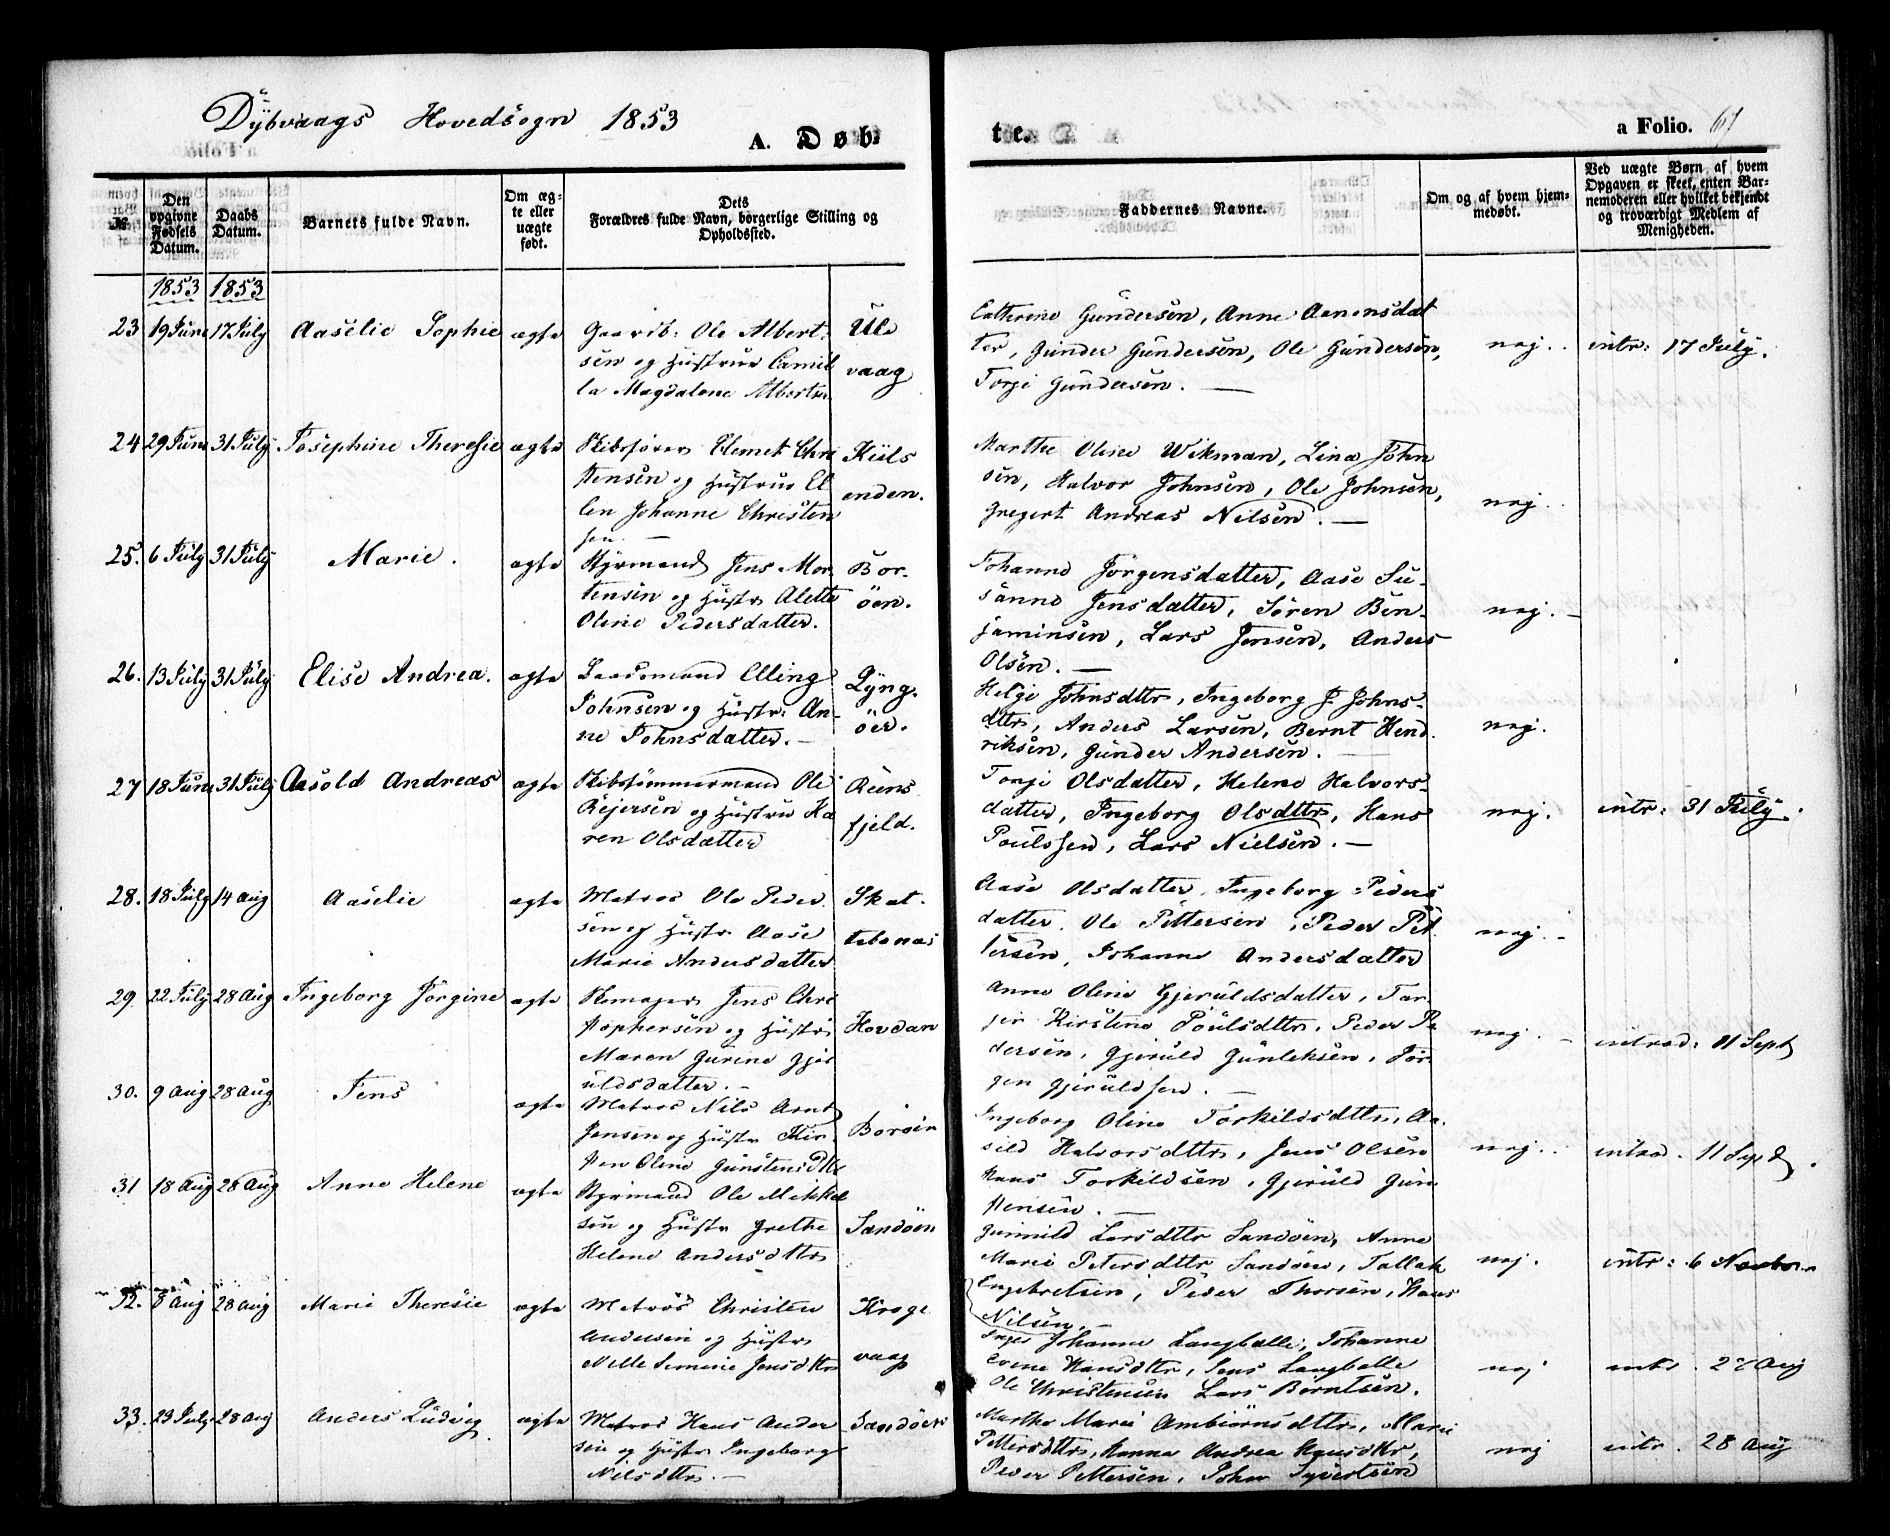 Dybvaags Hovedsogn 1853
A. Døb-
te.
a Folio. 67
№
Den opgivne Fødsels Datum.
Daabs Datum.
Barnets fulde Navn.
Om æg-te eller uægte født.
Dets Forældres fulde Navn, borgerlige Stilling og Opholdssted.
Faddernes Navne.
Om og af hvem hjem-medøbt.
Ved uægte Børn af hvem Opgaven er skeet, enten Bar-nemoderen eller hvilket bekjendt og troværdigt Medlem af Menigheden.
1853 1853
23 19 Juni 17 July Aaselie Sophie ægte
Gaardb: Ole Albert-
sen og Hustrue Camil
la Magdalene Albertsen
Ule
vaag
Cathrine Gundersen, Anne Aanonsdat
ter, Gunder Gundersen, Ole Gundersen,
Torje Gundersen.
nej. intr: 17 July.
24 29 Juni 31 July Josephine Theresie ægte
Skibsfører Clemet Chri
stensen og Hustrue El
len Johanne Christen
sen.
Kiils
enden.
Marthe Oline Wikman, Lina John
sen, Halvor Johnsen, Ole Johnsen,
Gregert Andreas Nilsen.
nej.
25. 6 July 31 July Marie. ægte
Styrmand Jens Mor
tensen og Hustr Alette
Oline Pedersdatter.
Bor-
öen.
Johanne Jörgensdatter, Aase Su-
sanne Jensdatter, Sören Ben-
jaminsen, Lars Jensen, Anders
Olsen.
nej.
26. 13 July 31 July Elise Andrea. ægte
Baadsmand Elling
Johnsen og Hustr: An-
ne Johnsdatter.
Lÿng-
öer.
Helge Johnsdttr, Ingeborg J Johns-
dttr, Anders Larsen, Bernt Hend
riksen, Gunder Andersen.
nej.
27 18 Juni 31 July Aasold Andreas ægte
Skibstömmermand Ole
Rejersen og Hustrue Ka
ren Olsdatter
Reins
fjeld.
Torje Olsdatter, Helene Halvors-
datter, Ingeborg Olsdttr, Hans
Poulssen, Lars Nielsen.
nej. intr: 31 July.
28. 18 July 14 Aug Aaselie ægte
Matros Ole Peder
sen og Hustr Aase
Marie Andersdatter
Skat-
tebonæs
Aase Olsdatter, Ingeborg Peders
datter, Ole Pettersen, Peder Pet
tersen, Johanne Andersdatter
nej.
29. 22 July 28 Aug Ingeborg Jörgine ægte
Skomager Jens Chri
stophersen og Hustr
Maren Gurine Gjer
uldsdatter.
Hovdan
Anne Oline Gjeruldsdatter, Tar-
jer Kirstine Poulsdttr, Peder Pe
dersen, Gjeruld Gunleksen, Jör-
gen Gjeruldsen.
nej. introd: 11 Sept
30. 9 Aug 28 Aug Jens ægte
Matros Nils Arnt
Jensen og Hustr Kir-
sten Oline Gunstensdttr
Boröin
Ingeborg Oline Torkildsdttr, Aa-
sild Halvorsdttr, Jens Olsen
Hans Torkildsen, Gjeruld Gun
stensen.
nej. introd. 11 Sept.
31 18 Aug 28 Aug Anne Helene ægte
Styrmand Ole Mikkel
sen og Hustr Grethe
Helene Andersdttr
Sandöen
Gunnild Larsdttr Sandöen, Anne
Marie Petersdttr Sandöen, Tallak
Engebretsen, Peder Thorsen, Hans
Nilsen.
nej. intr: 6 Novbr
32. 8 Aug 28 Aug Marie Theresie ægte
Matros Christen
Andersen og Hustr
Nelle Jensdttr
Krage
vaag
Johanne Langballe, Johanne
Hansdttr, Jens Langballe
Ole Christensen Lars Berntsen.
nej intr. 28 Aug
33. 23 July 28 Aug Anders Ludvig ægte
Matros Hans Ander
sen og Hustr Ingeborg
Nilsdttr.
Sandöen
Marthe Marie Ambiörnsdttr, Marie
Pettersdttr, Hanna Andrea Hansdttr,
Peder Pettersen, John Syvertsen
nej intr. 28 Aug